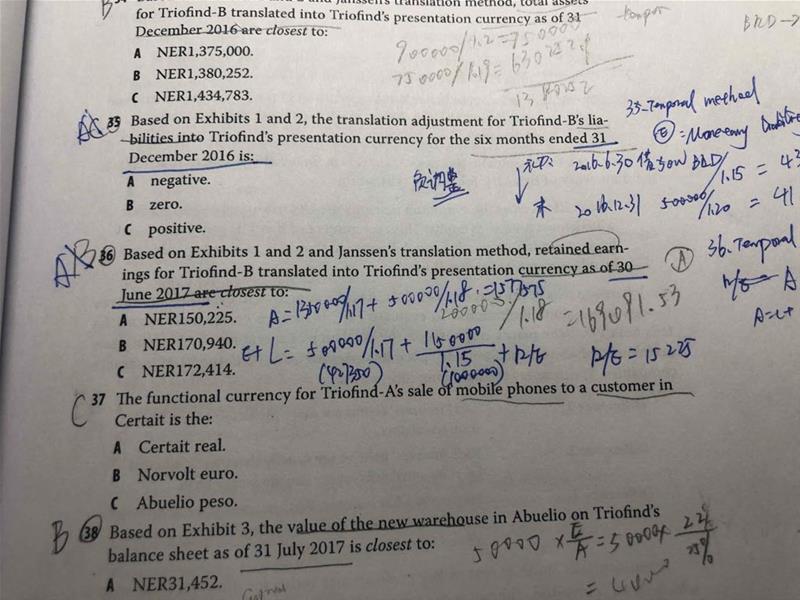 for Triofind-B translated into Triofind's presentation currency as of 31
December 2016 are closest to:
A NER1,375,000.
B NER1,380,252.
C NER1,434,783.
900000/1.2=750000
750000/1.19=630252
35 Based on Exhibits 1 and 2, the translation adjustment for Triofind-B's lia-
bilities into Triofind's presentation currency for the six months ended 31
December 2016 is:
A negative.
B zero.
C positive.
负调整
35. Temporal method
2016.6.30 借 50W BRD/1.15 = 43
末 2016.12.31 500000/1.20 = 41
A B 36 Based on Exhibits 1 and 2 and Janssen's translation method, retained earn-
ings for Triofind-B translated into Triofind's presentation currency as of 30
June 2017 are closest to:
A NER150,225.
B NER170,940.
C NER172,414.
A = 1350000/1.17 + 500000/1.18 = 1577575
200000/1.18 = 169491.53
E+L = 500000/1.17 + 1150000/1.15 + R/E
(427350) (1000000)
R/E = 15225
A
36. Temporal
R/E A
A=L+
C 37 The functional currency for Triofind-A's sale of mobile phones to a customer in
Certait is the:
A Certait real.
B Norvolt euro.
C Abuelio peso.
B 38 Based on Exhibit 3, the value of the new warehouse in Abuelio on Triofind's
balance sheet as of 31 July 2017 is closest to:
A NER31,452.
50000 × E/A = 50000×